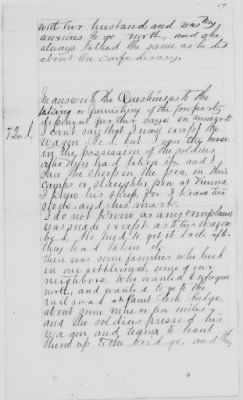 with her husband and was they
anxious to go north, and she
always talked the same as he did
about the confederacy
In answer to the Questions as to the
taking or furnishing of the property
deponent further says
72nd
I can't say that I was except the
wagon bed, but I saw the horse
in the possession of the soldiers
after they had taken it and I
saw the sheep in the pen, in their
camps or slaughter pen at Vienna
I knew his sheep for I know his
stock and his mark.
I do not know as any complaint
was made except as to his wagon
bed. He tried to get it back after
they had taken it
There was some families who lived
in our settlement, some of our
neighbors, who wanted to refugee
north, and wanted to go to the
railroad at Paint Rock Bridge
about some nine or ten miles
and the soldiers pressed his
wagon and team to haul
them up to the bridge, and they